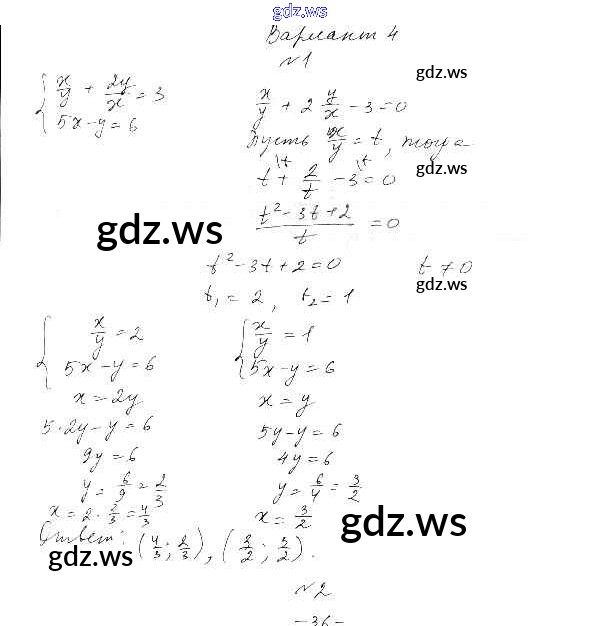 gdz.ws
Вариант 4
№1
gdz.ws
{ x/y + 2y/x = 3
5x - y = 6
x/y + 2 y/x - 3 = 0
Пусть x/y = t, тогда
gdz.ws
t + 2/t - 3 = 0
(t² - 3t + 2)/t = 0
gdz.ws
t² - 3t + 2 = 0 t ≠ 0
gdz.ws
t₁ = 2, t₂ = 1
{ x/y = 2
5x - y = 6
x = 2y
5·2y - y = 6
9y = 6
y = 6/9 = 2/3
x = 2 · 2/3 = 4/3
{ x/y = 1
5x - y = 6
x = y
5y - y = 6
4y = 6
y = 6/4 = 3/2
x = 3/2
gdz.ws
Ответ: (4/3; 2/3), (3/2; 3/2).
gdz.ws
№2